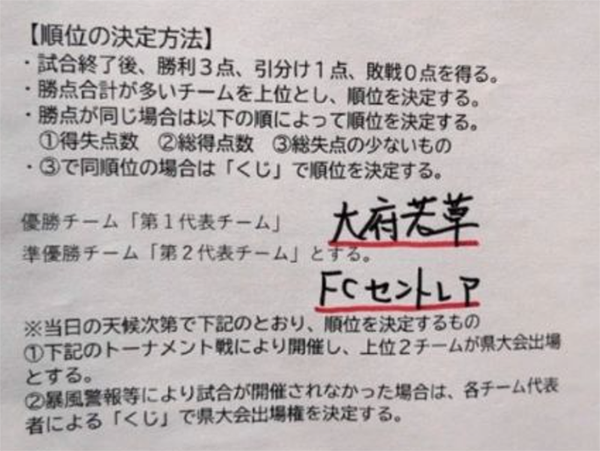 【順位の決定方法】
・試合終了後、勝利3点、引分け1点、敗戦0点を得る。
・勝点合計が多いチームを上位とし、順位を決定する。
・勝点が同じ場合は以下の順によって順位を決定する。
①得失点数　②総得点数　③総失点の少ないもの
・③で同順位の場合は「くじ」で順位を決定する。
優勝チーム「第1代表チーム」　大府若草
準優勝チーム「第2代表チーム」とする。
FCセントレア
※当日の天候次第で下記のとおり、順位を決定するもの
①下記のトーナメント戦により開催し、上位2チームが県大会出場
とする。
②暴風警報等により試合が開催されなかった場合は、各チーム代表
者による「くじ」で県大会出場権を決定する。